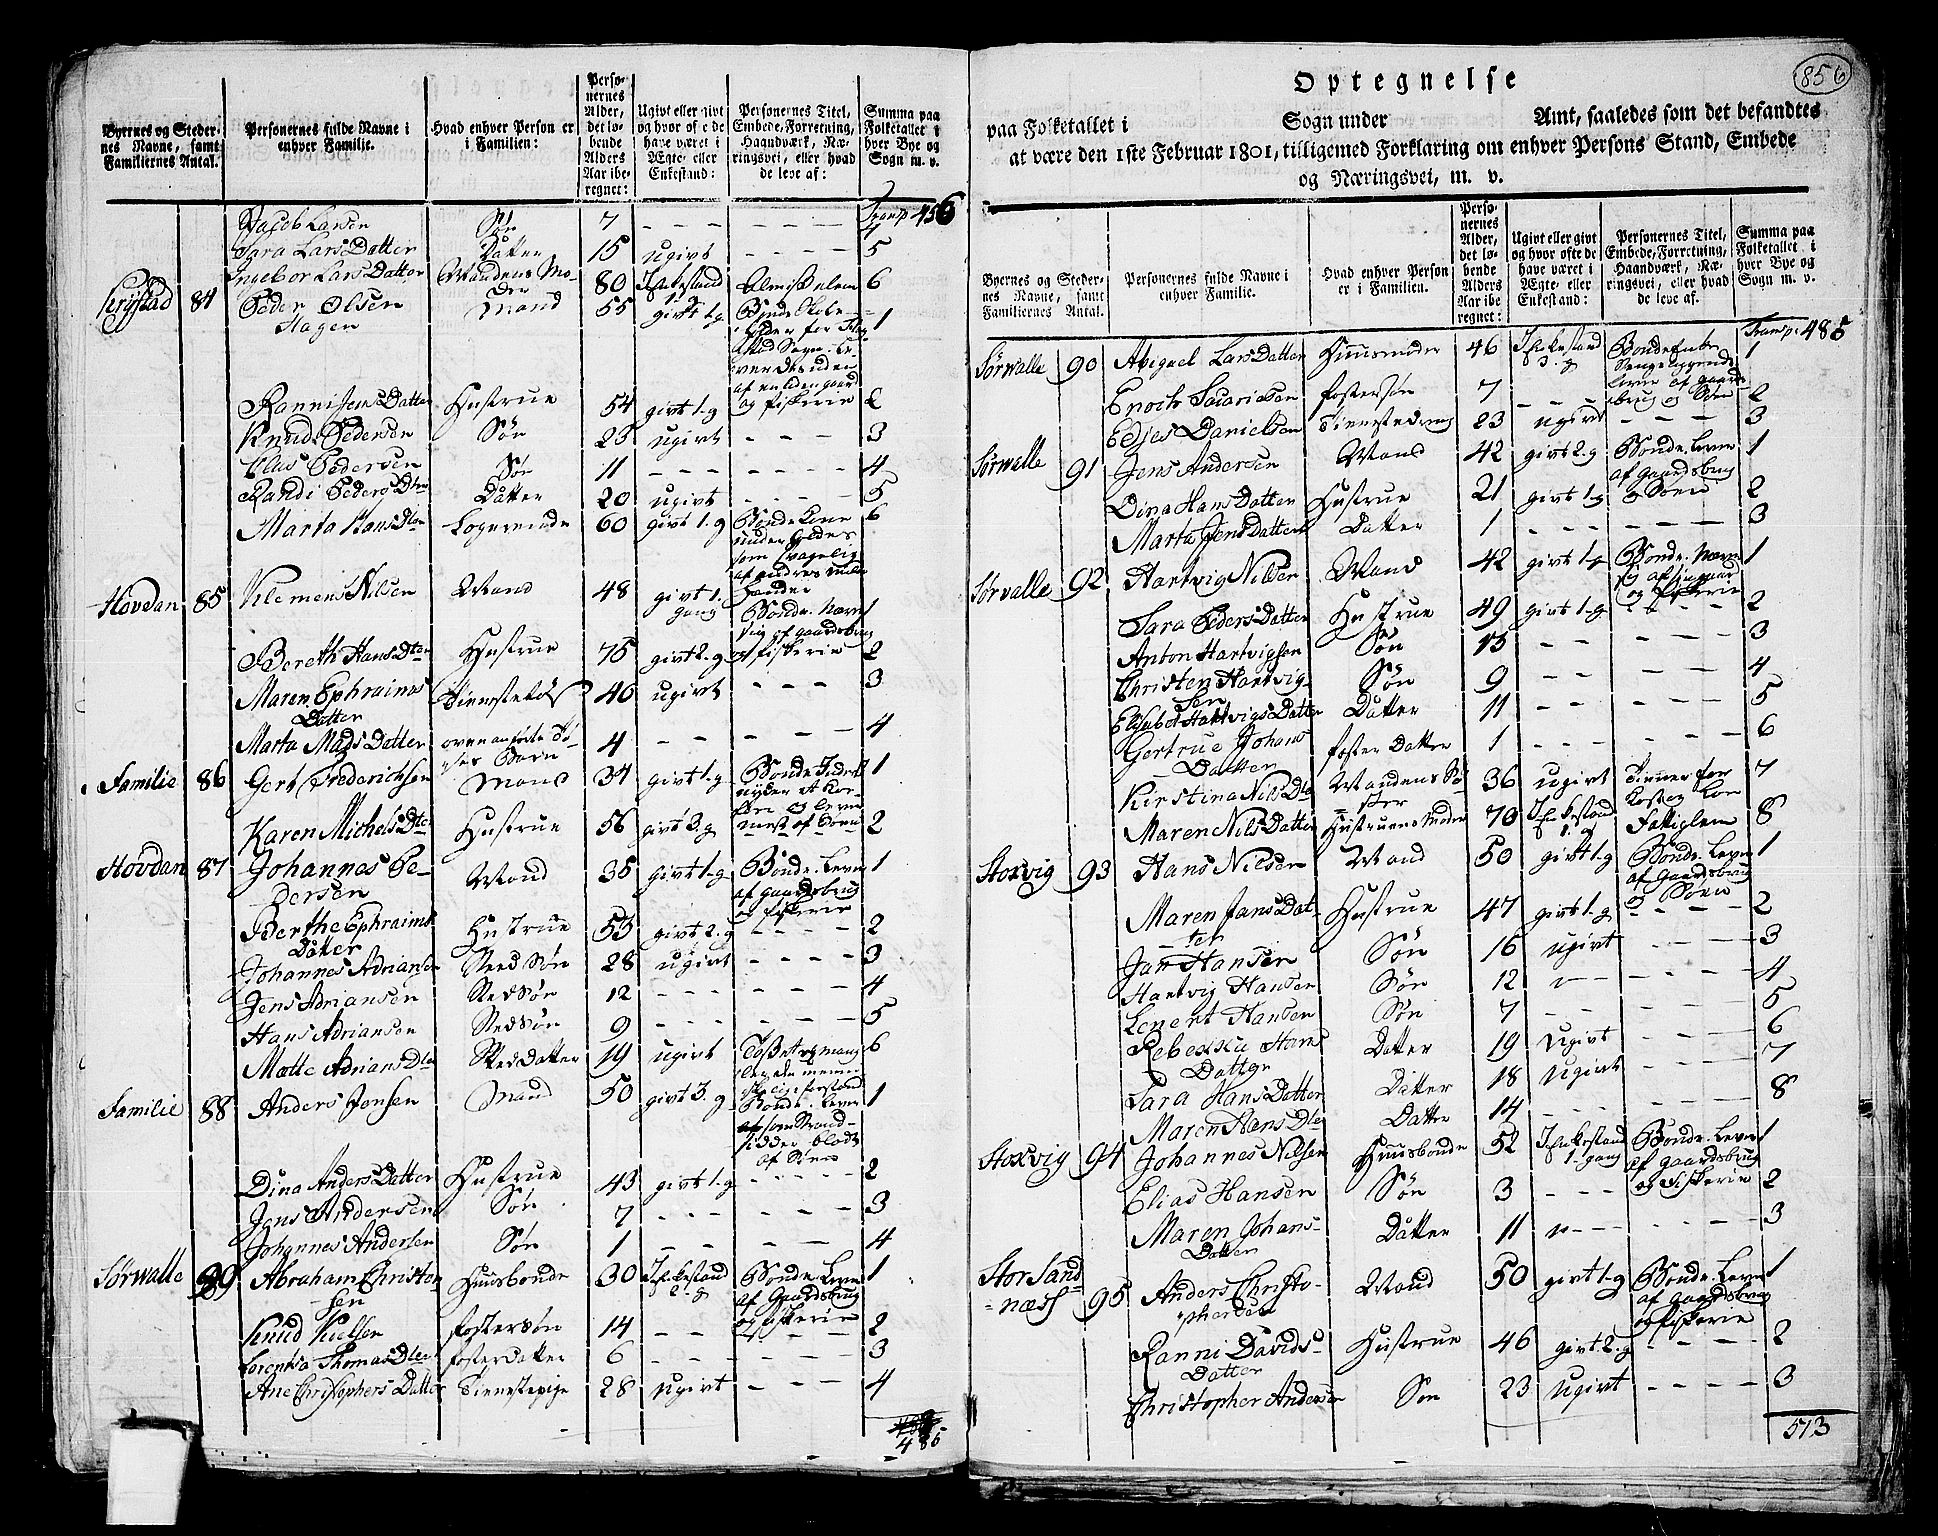 856
Byernes og Steder-
nes Navne, samt
Familiernes Antal.
Personernes fulde Navne i
enhver Familie.
Hvad enhver Person er
i Familien:
Perso-
nernes
Alder,
det lø-
bende
Alders
Aar ibe-
regnet:
Ugivt eller givt
og hvor ofte de
have været i
Ægte- eller
Enkestand:
Personernes Titel,
Embede, Forretning,
Haandværk, Næ-
ringsvei, eller hvad
de leve af:
Summa paa
Folketallet i
hver Bye og
Sogn m. v.
Transp. 456
Jacob Larsen Søn 7 - - - - - - 4
Sara Lars Datter Datter 15 ugivt - - - 5
Ingebor Lars Datter Mandens Mo-
der 80 Enkestand Almisselem 6
84 Peder Olsen
Hagen Mand 55 givt 1. g 1
Ranni Jens Datter Hustrue 54 givt 1-g og fiskerie 2
Knud Pedersen Søn 23 ugivt - - - 3
Clas Pedersen Søn 11 - - - - - - 4
Randi Peders Dtter Datter 20 ugivt - - - 5
Marta Hans Dter Logerende 60 givt 1. g Bonde Kone 6
Hovdan 85 Klemens Nilsen Mand 48 givt 1.
gang Bonde. Nærer
sig af gaardsbrug
og fiskerie 1
Bereth Hans Dter Hustrue 75 givt 2. g 2
Maren Ephraims
Datter Tienestetøs 40 ugivt - - - 3
Marta Mads Datter ovenanførte Tø-
ses Barn 4 - - - - - - 4
Familie 86 Gert Frederichsen Mand 34 givt 1-g 1
Karen Michels Dter Hustrue 56 givt 3. g 2
Hovdan 87 Johannes Pe-
dersen Mand 35 givt 1-g Bonde. Lever
af gaardsbrug
og fiskerie 1
Berthe Ephraims
Datter Hustrue 53 givt 2. g - - - 2
Johannes Adriansen Sted Søn 28 ugivt - - - 3
Jens Adriansen Stedsøn 12 - - - - - - 4
Hans Adriansen Stedsøn 9 - - - - - - 5
Mætte Adrians Dter Sted Datter 19 ugivt 6
Familie 88 Anders Jensen Mand 50 givt 3. g Bonde. Lever 1
Dina Anders Datter Hustrue 43 givt 1-g - - - 2
Jens Andersen Søn 7 - - - - - - 3
Johannes Andersen Søn 1 - - - - - - 4
Sørwalle 89 Abraham Christen-
sen Huusbonde 30 Enkestand
2. g Bonde. Lever
af Gaardsbrug
og fiskerie 1
Knud Kielsen fostersøn 14 - - - - - 2
Lorentsa Thomas Dter fosterdatter 6 - - - - - - 3
Ane Christophers Datter Tienestepige 28 ugivt - - - 4
485
Optegnelse
paa Folketallet i Sogn under Amt, saaledes som det befandtes
at være den 1ste Februar 1801, tilligemed Forklaring om enhver Persons Stand, Embede
og Næringsvei, m. v.
Byernes og Steder-
nes Navne, samt
Familiernes Antal.
Personernes fulde Navne i
enhver Familie.
Hvad enhver Person
er i Familien.
Perso-
nernes
Alder,
det lø-
bende
Alders
Aar ibe-
regnet:
Ugivt eller givt
og hvor ofte de
have været i
Ægte- eller
Enkestand:
Personernes Titel,
Embede, Forretning,
Haandværk, Næ-
ringsvei, eller hvad
de leve af.
Summa paa
Folketallet i
hver Bye og
Sogn m. v.
Transp. 485
Sørwalle 90 Abigael Lars Datter Huusmoder 46 Enkestand
3. g 1
Enoch Sacariesen fostersøn 7 - - - 2
Edies Danielsen Tienestedreng 23 ugivt - - - 3
Sørwalle 91 Jens Andersen Mand 42 givt 2. g Bonde. Lever
af gaardsbrug
og Søen 1
Dina Hans Datter Hustrue 21 givt 1-g 2
Marta Jens Datter Datter 1 - - - - - - 3
Sørvalle 92 Hartvig Nilsen Mand 42 givt 1-g 1
Sara Peders Datter Hustrue 49 givt 1-g - - - 2
Anton Hartvigsen Søn 13 - - - - - 3
Christen Hartvig-
sen Søn 9 - - - - - 4
Elisabet Hartvigs Datter Datter 11 - - - - - 5
Gertrue Johans
Datter foster Datter 1 - - - - - 6
Kirstina Nils Dter Mandens Sø-
ster 36 ugivt Tienner for
kost og løn 7
Maren Nils Datter Hustruens Moder 70 Enkestand
1. g Fattiglem 8
Storvig 93 Hans Nilsen Mand 50 givt 1-g Bonde. Lever
af Gaardsbrug
og Søen 1
Maren Jans Dat-
ter Hustrue 47 givt 1. g - - - 2
Jan Hansen Søn 16 ugivt - - - 3
Hartvig Hansen Søn 12 - - - - 4
Lenert Hansen Søn 7 - - - - - 5
Rebekka Hans
Datter Datter 19 ugivt - - - 6
Sara Hans Datter Datter 18 ugivt - - - 7
Maren Hans Dter Datter 14 - - - - - - 8
Storvig 94 Johannes Nilsen Huusbonde 52 Enkestand
1. gang Bonde. Lever
af gaardsbrug
og Fiskerie 1
Elias Hansen Søn 3 - - - 2
Maren Johans-
Datter Datter 11 - - - - - 3
Stor Sand-
næss 95 Anders Christo-
phersen Mand 50 givt 1-g Bonde. Lever
af Gaardsbrug
og fiskerie 1
Ranni Davids-
Datter Hustrue 46 givt. 2. g - - - 2
Christopher Andersen Søn 23 ugivt - - - - 3
513